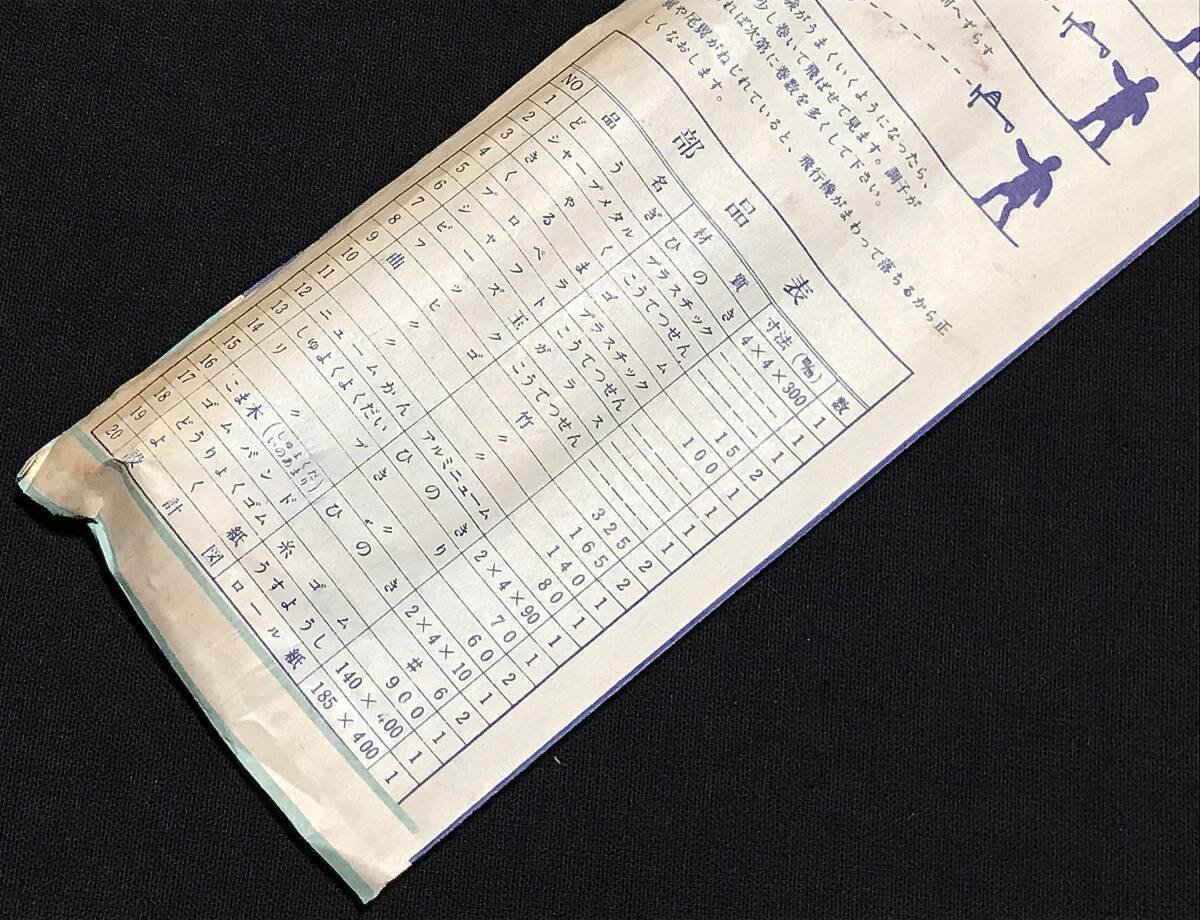 前へずらす
験がうまくいくようになったら、
少し巻いて飛ばせて見ます。調子が
れば次第に巻数を多くして下さい。
翼や尾翼がねじれていると、飛行機がまわって落ちるから正
しくなおします。
部品表
NO 品名 材質 寸法(m/m) 数
1 どうぎ ひのき 4×4×300 1
2 シャープメタル プラスチック — 1
3 きゃく こうてつせん — 1
4 くるま ゴム 15 2
5 プロペラ プラスチック 100 1
6 シャフト こうてつせん — 1
7 ビーズ玉 ガラス — 1
8 フック こうてつせん —
9 曲ヒゴ 竹 325 2
10 〃 〃 165 2
11 〃 140 1
12 ニュームかん アルミニューム 80 1
13 しゅよくだい ひのき 2×4×90 1
14 リブ きり 70 1
15 〃 〃 60 2
16 こま木(しゅよくだいのあまり) ひのき 2×4×10 1
17 ゴムバンド #6 2
18 どうりよくゴム 糸ゴム 900 1
19 よく紙 うすようし 140×400 1
20 設計図 ロール紙 185×400 1